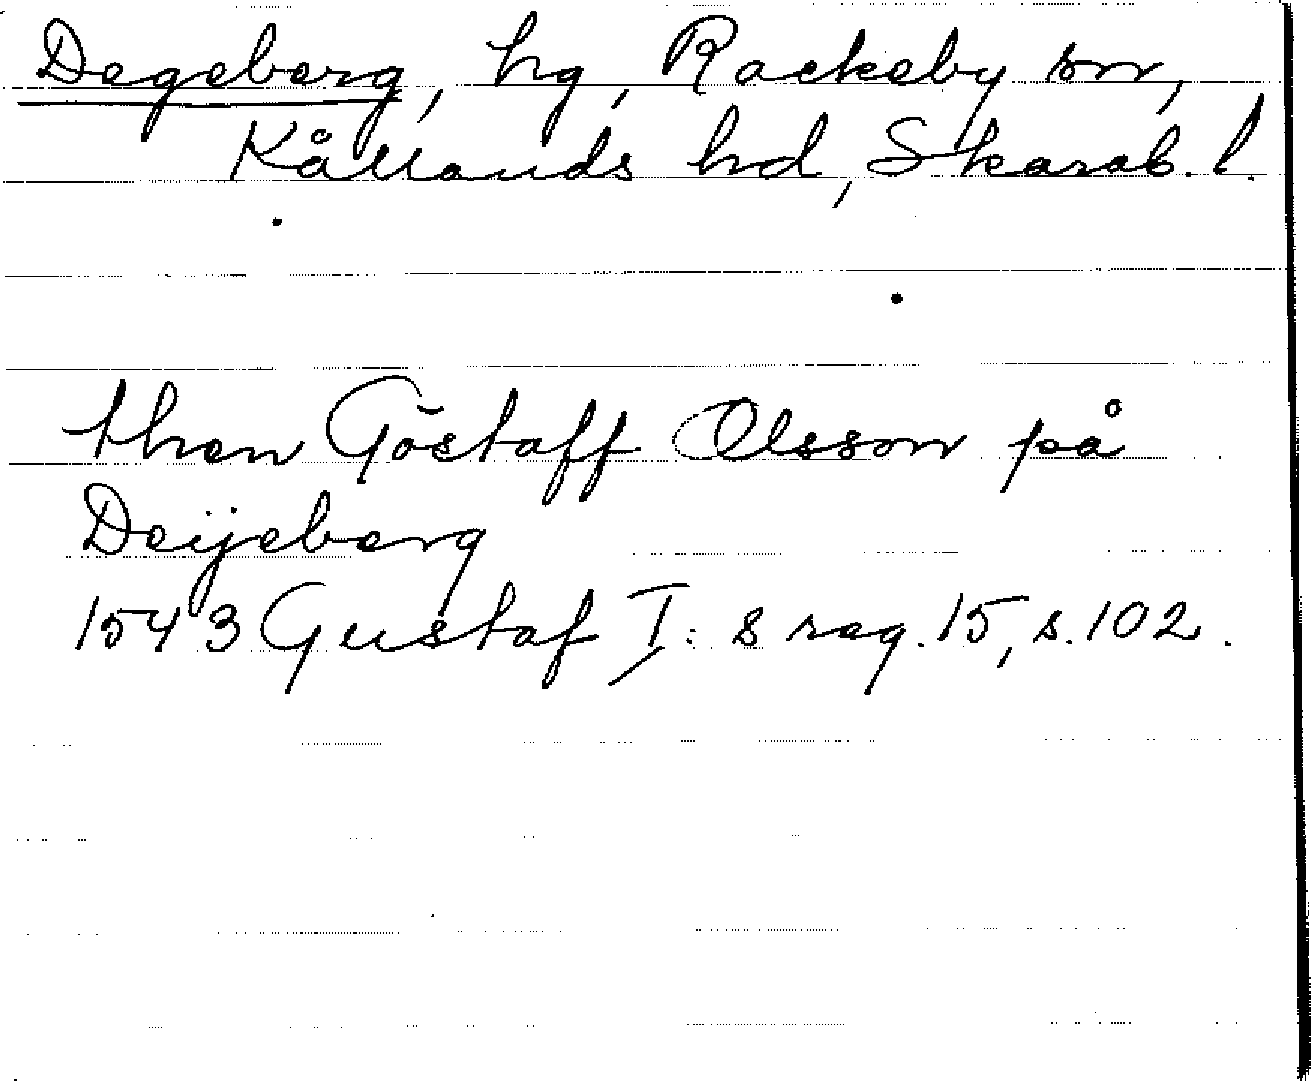 Degeberg, hg, Rackeby sn,
Kållands hd, Skarab. l.
then Göstaff Olsson på
Deÿeberg
1543 Gustaf I: s reg. 15, s. 102.